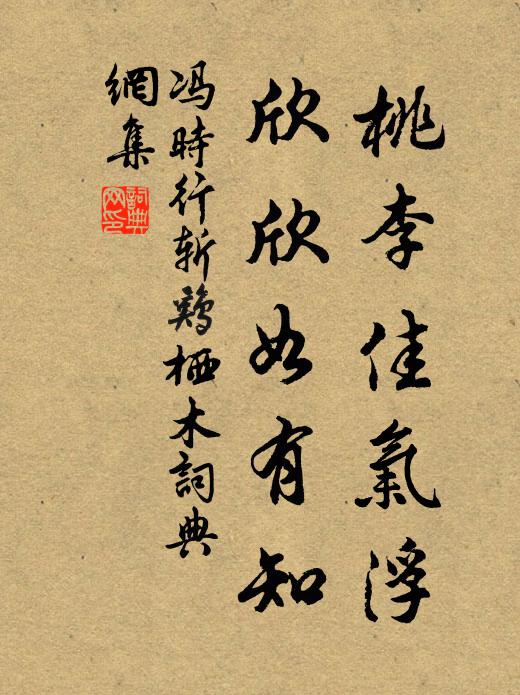 桃李佳氣浮
欣欣如有知
馮時行斬鷄栖木詞典
網集
詞典網印